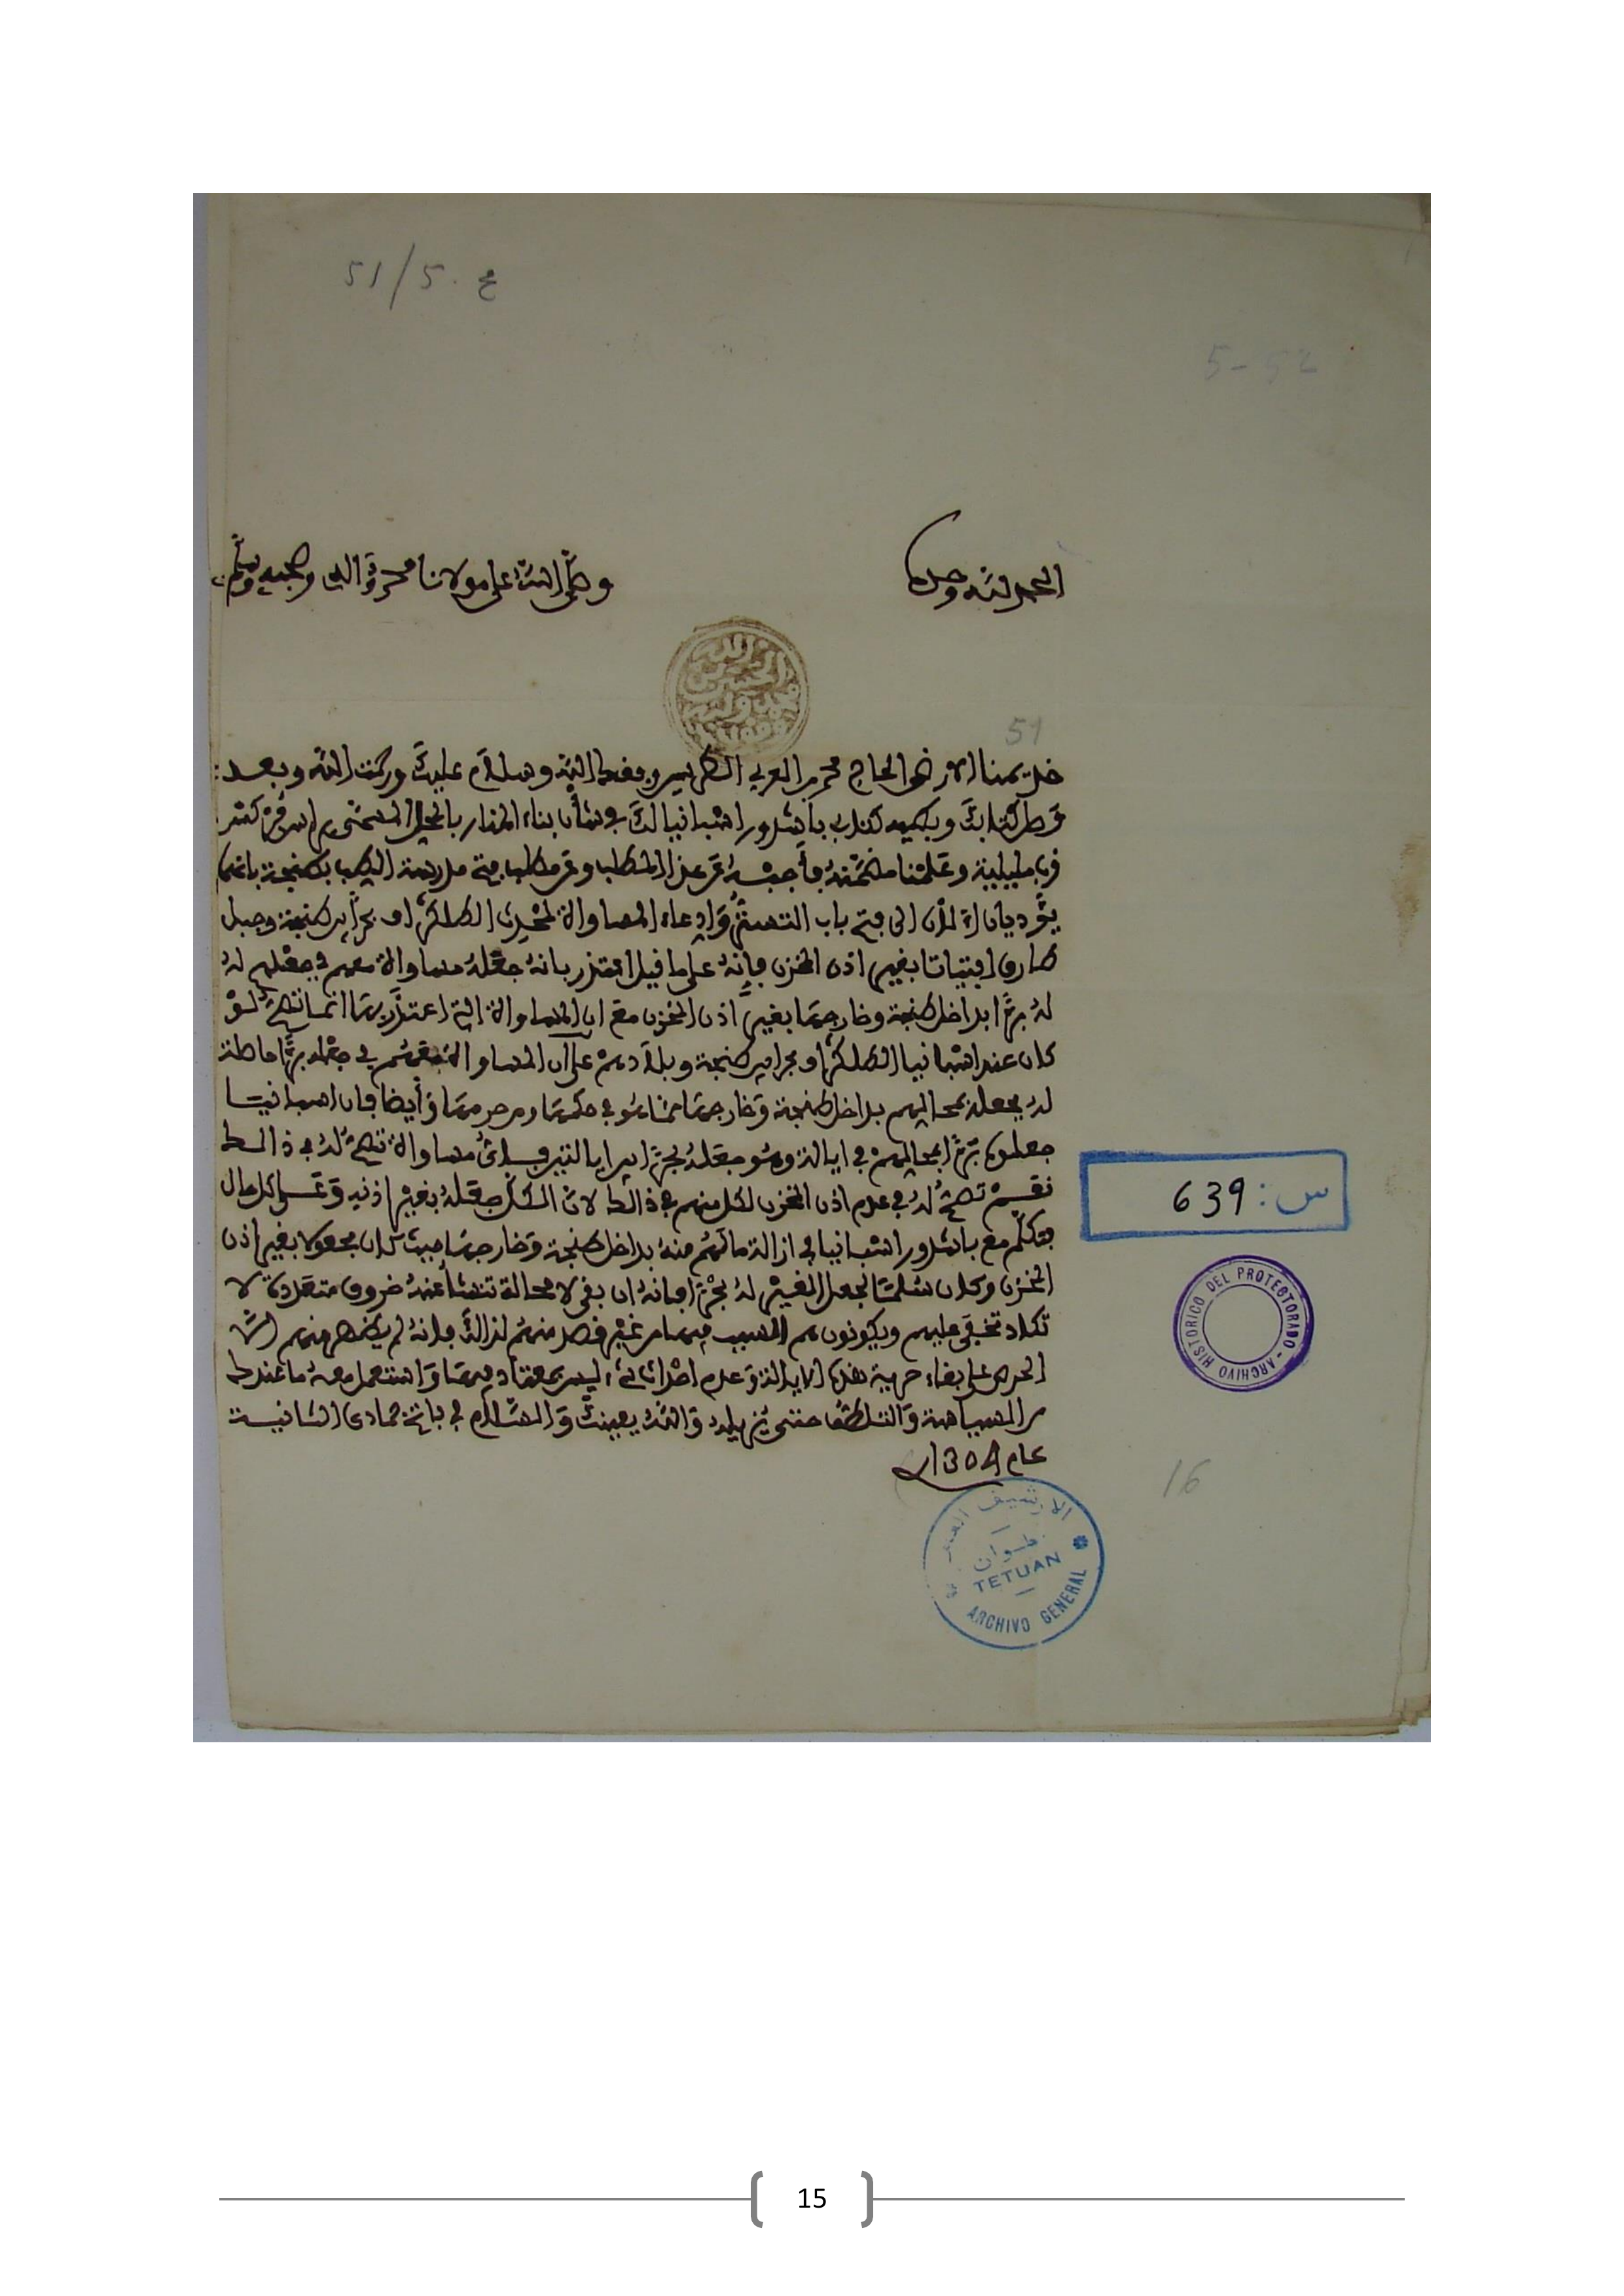 51/5. ع
5-52
الحمد لله وحده
وصلى الله على مولانا محمد وآله وصحبه وسلم
51
خديمنا الأرضى الحاج محمد بن العربي الطريس وفقك الله وسلام عليك ورحمت الله وبعد
وصل كتابك وبطيه كتاب باشدور اصبانيا لك في شأن بناء المنار بالمحل المسمى
قرب مليلية وعلمنا مضمنه فأجبه عن هذا المطلب وعن مطلب فتح مدرسة الطب بطنجة بأنهما
يؤديان الآن إلى فتح باب التشبث وادعاء المساواة لمحدث التلكراف بحرا بين طنجة وجبل
طارق افتياتا بغير إذن المخزن فإنه على ما قيل اعتذر بأنه جعله مساواة معهم في جعلهم له
له برا بداخل طنجة وخارجها بغير إذن المخزن مع ان المساواة التي اعتذر بها انما تصح له لو
كان عند اصبانيا التلكراف بحرا بين طنجة وبلادهم على أن المساواة لهم في جعله برا حاصلة
له بجعله بمحالهم بداخل طنجة وخارجها مما هو في حكمها ومن حرمها وأيضا فإن اصبانيا
جعلوه برا بمحالهم في ايالة وهو جعله بحرا بين ايالتين فلا مساواة تصح له في ذلك
نعم تصح له في عدم اذن المخزن لكل منهم في ذلك لأن الكل جعله بغير إذنه وعلى كل حال
فتكلم مع باشدور اصبانيا في ازالة ما لهم منه بداخل طنجة وخارجها حيث كان مجعولا بغير اذن
المخزن وكان سلما لجعل الغير له بحرا فإنه ان بقي لا محالة تنشأ عنه خروق متعددة لا
تكاد تخفى عليهم ويكونون هم السبب فيها من غير قصد منهم لذلك فإنه لم يظهر منهم إلا
الحرص على بقاء حرمة هذه الايالة وعدم احداث شيء ليس بمعتاد فيها واستعمل معه ما عندك
من السياسة والتلطف حتى يزيله والله يعينك والسلام في فاتح جمادى الثانية
عام 1308
س: 639
ARCHIVO HISTORICO DEL PROTECTORADO
16
الأرشيف العام
تطوان
TETUAN
ARCHIVO GENERAL
15